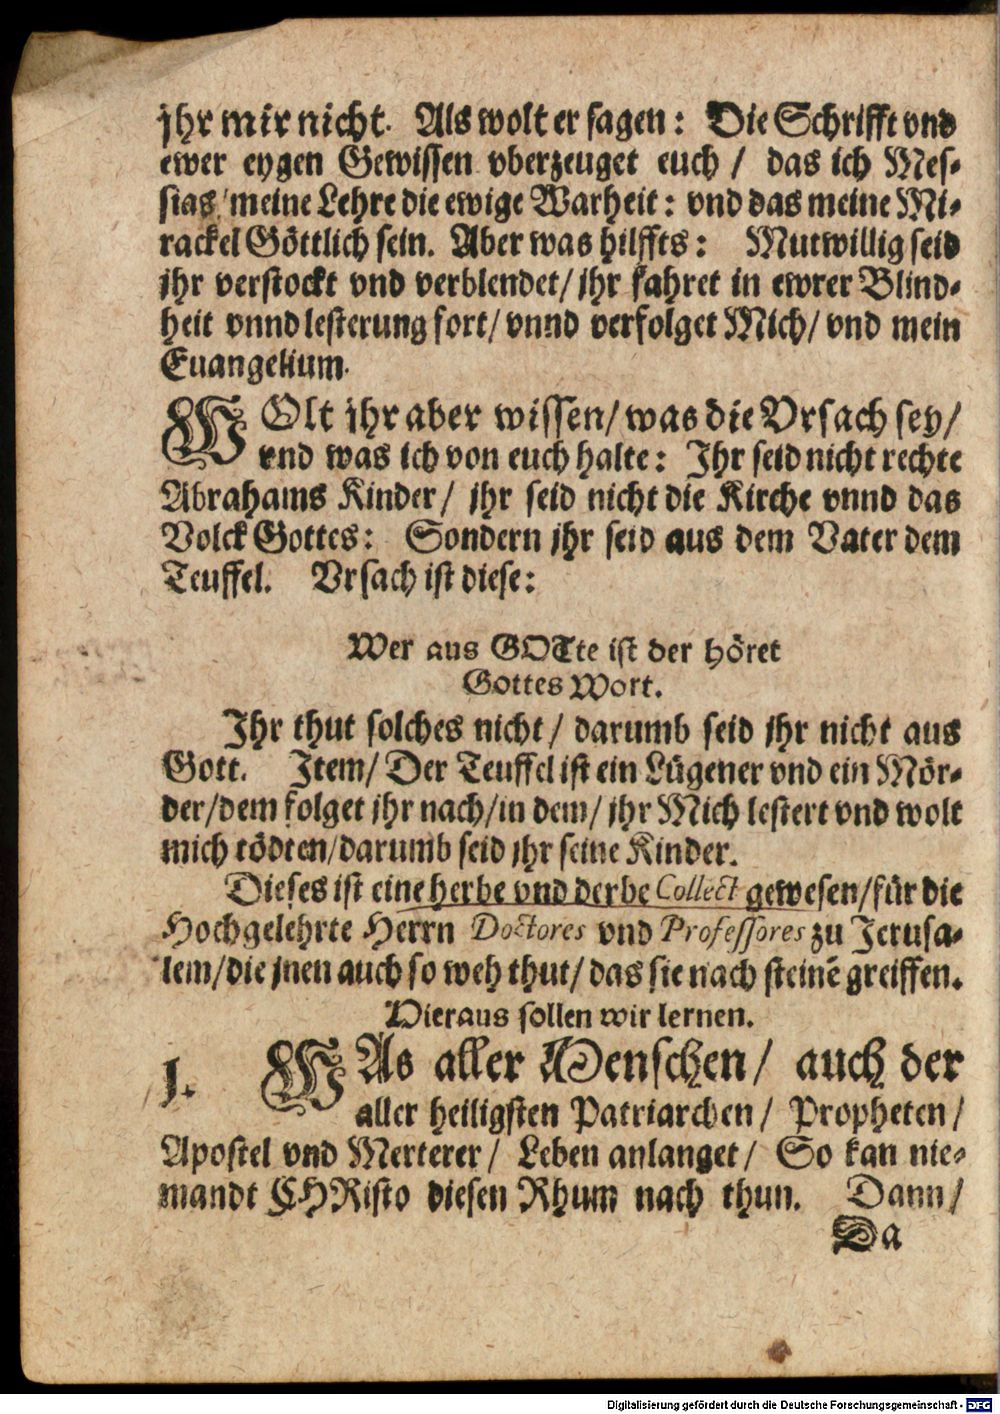 jhr mir nicht. Als wolt er sagen: Die Schrifft vnd
ewer eygen Gewissen vberzeuget euch / das ich Mes-
sias / meine Lehre die ewige Warheit: vnd das meine Mi-
rackel Göttlich sein. Aber was hilffts: Mutwillig seid
jhr verstockt vnd verblendet / jhr fahret in ewrer Blind-
heit vnnd lesterung fort / vnnd verfolget Mich / vnd mein
Euangelium.
WOlt jhr aber wissen / was die Vrsach sey /
vnd was ich von euch halte: Ihr seid nicht rechte
Abrahams Kinder / jhr seid nicht die Kirche vnnd das
Volck Gottes: Sondern jhr seid aus dem Vater dem
Teuffel. Vrsach ist diese:
Wer aus GOTte ist der höret
Gottes Wort.
Ihr thut solches nicht / darumb seid jhr nicht aus
Gott. Item / Der Teuffel ist ein Lügener vnd ein Mör-
der / dem folget jhr nach / in dem / jhr Mich lestert vnd wolt
mich tödten / darumb seid jhr seine Kinder.
Dieses ist eine herbe vnd derbe Collect gewesen / für die
Hochgelehrte Herrn Doctores vnd Professores zu Jerusa-
lem / die jnen auch so weh thut / das sie nach steinē greiffen.
Hieraus sollen wir lernen.
I. WAs aller Menschen / auch der
aller heiligsten Patriarchen / Propheten /
Apostel vnd Merterer / Leben anlanget / So kan nie-
mandt CHRisto diesen Rhum nach thun. Dann /
Da
Digitalisierung gefördert durch die Deutsche Forschungsgemeinschaft - DFG